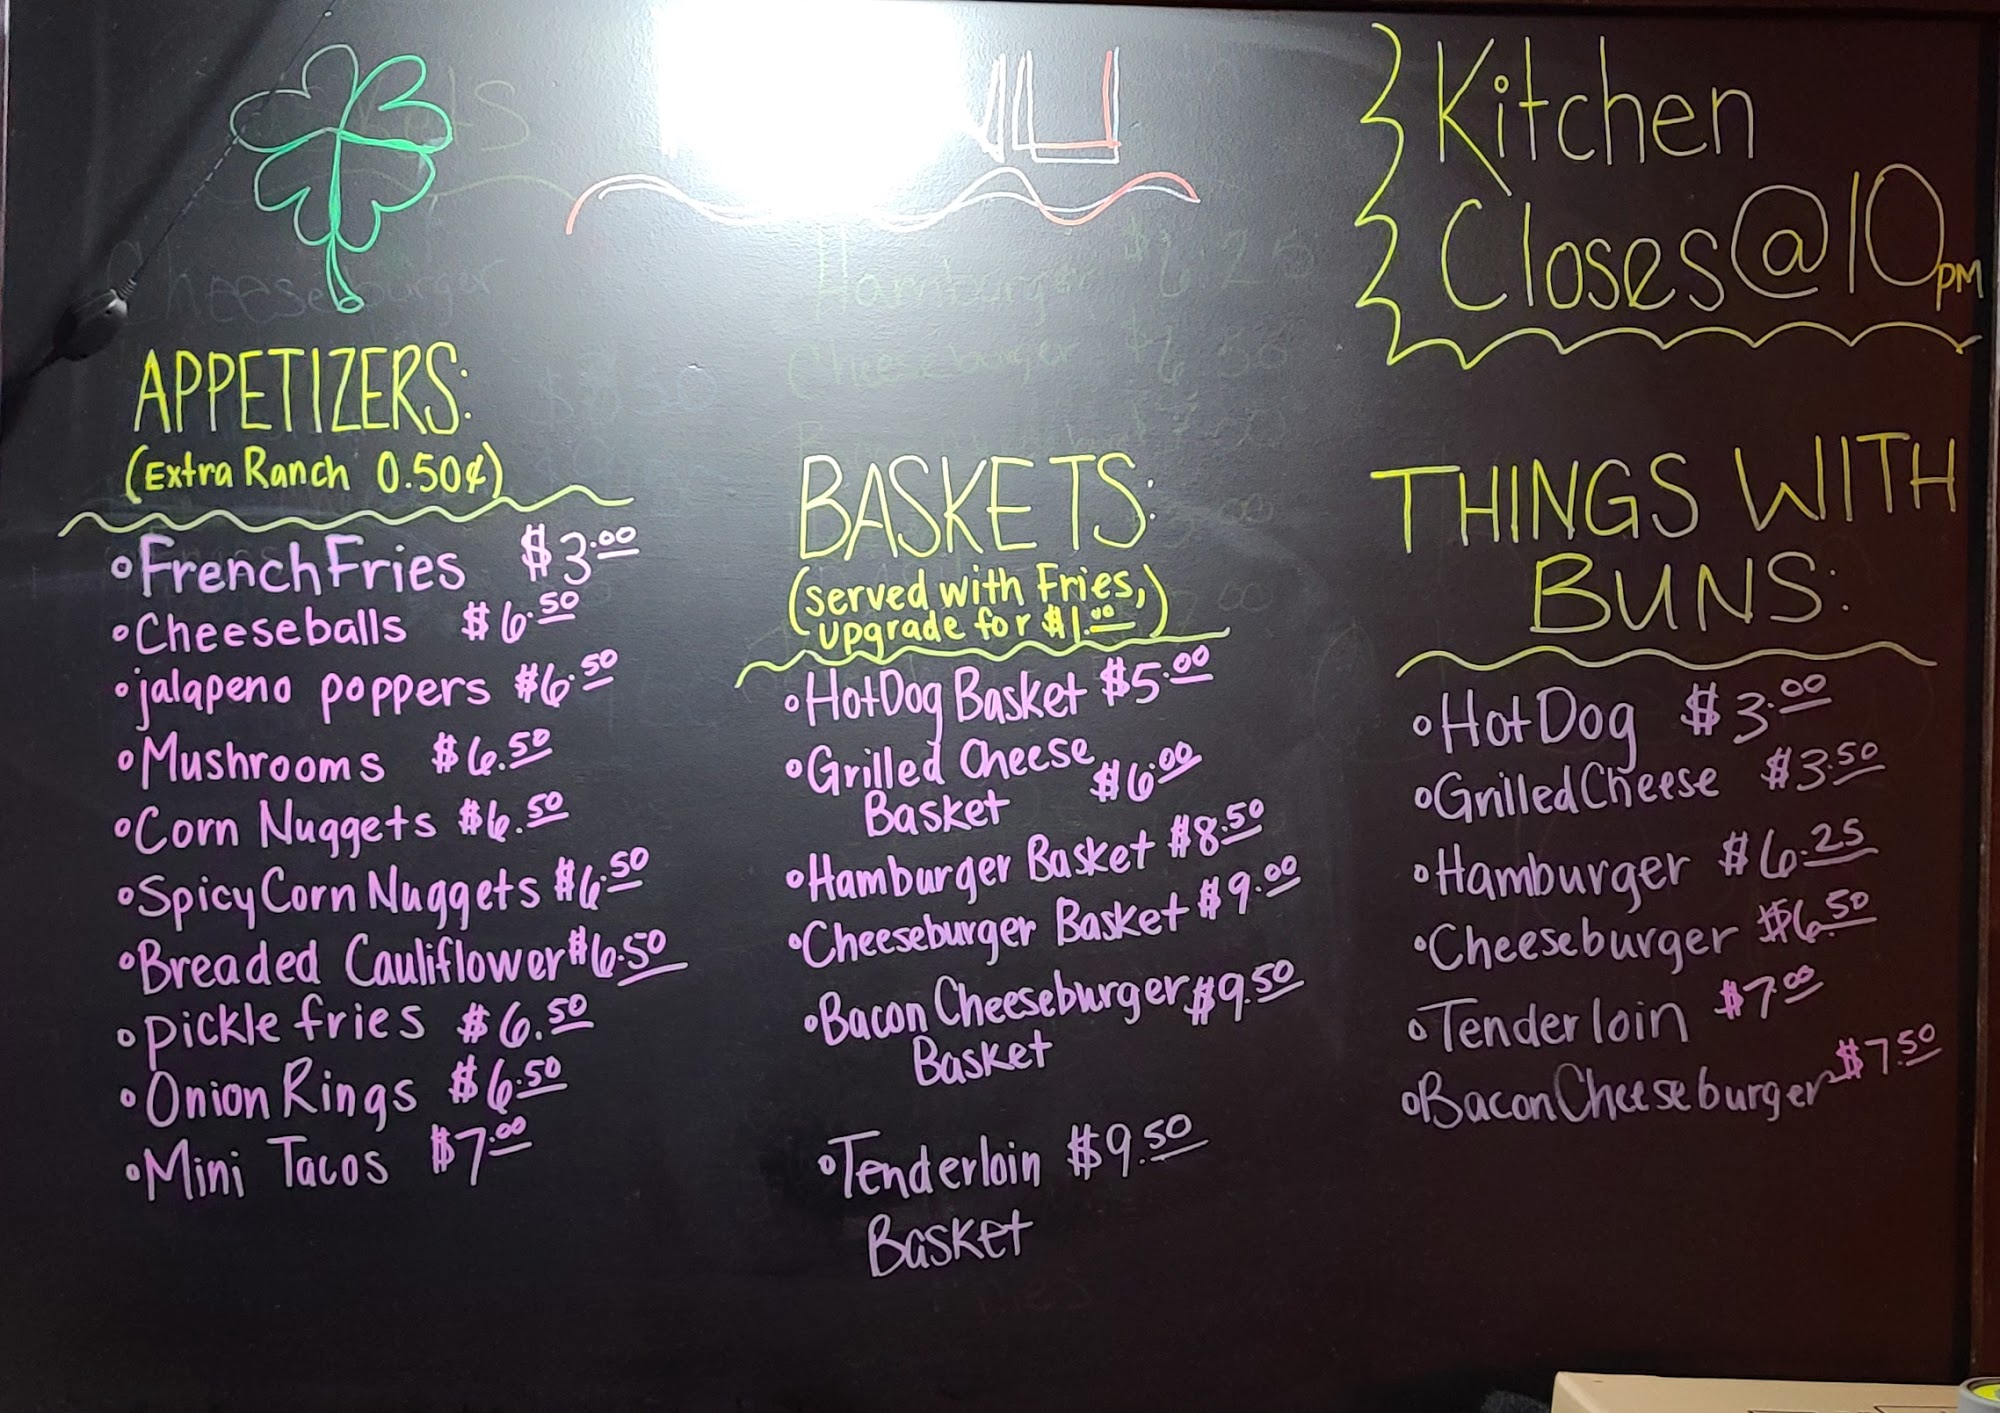 Kitchen
Closes @ 10 PM
APPETIZERS:
(Extra Ranch 0.50¢)
French Fries $3.00
Cheeseballs $6.50
jalapeno poppers $6.50
Mushrooms $6.50
Corn Nuggets $6.50
Spicy Corn Nuggets $6.50
Breaded Cauliflower $6.50
pickle fries $6.50
Onion Rings $6.50
Mini Tacos $7.00
BASKETS:
(served with Fries,
upgrade for $1.00)
Hot Dog Basket $5.00
Grilled Cheese
Basket $6.00
Hamburger Basket $8.50
Cheeseburger Basket $9.00
Bacon Cheeseburger $9.50
Basket
Tenderloin $9.50
Basket
THINGS WITH
BUNS:
Hot Dog $3.00
Grilled Cheese $3.50
Hamburger $6.25
Cheeseburger $6.50
Tenderloin $7.00
Bacon Cheeseburger $7.50